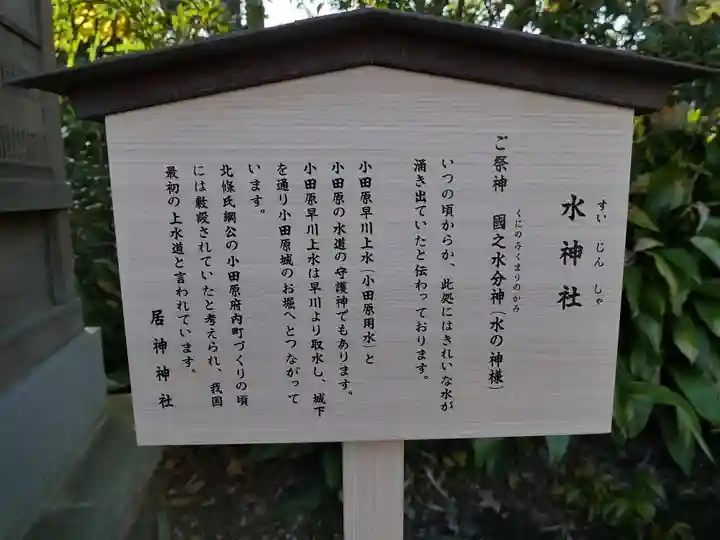 すいじんしゃ
水神社
ご祭神 國之水分神(水の神様)
くにのみくまりのかみ
いつの頃からか、此処にはきれいな水が
涌き出ていたと伝わっております。
小田原早川上水(小田原用水)と
小田原の水道の守護神でもあります。
小田原早川上水は早川より取水し、城下
を通り小田原城のお堀へとつながって
います。
北條氏綱公の小田原府内町づくりの頃
には敷設されていたと考えられ、我国
最初の上水道と言われています。
居神神社